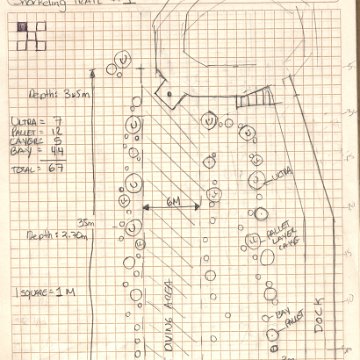 Snorkeling TRAIL
Depth: 3.65m
ULTRA = 7
PALLET = 12
LAYER = 5
BAY = 44
TOTAL: = 67
6M
ULTRA
35m
Depth: 3.30m
PALLET
LAYER
CAKE
1 SQUARE = 1 M
DIVING AREA
BAY
PALLET
DOCK